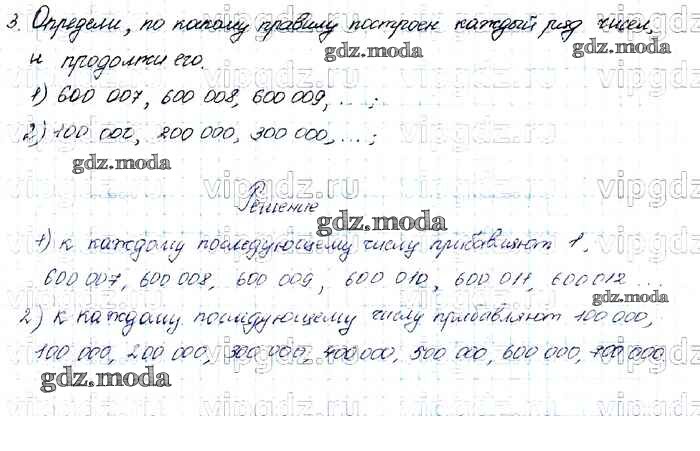 3. Определи, по какому правилу построен каждый ряд чисел,
и продолжи его.
1) 600 007, 600 008, 600 009, ... ;
2) 100 000, 200 000, 300 000, ... ;
Решение
1) к каждому последующему числу прибавляют 1,
600 007, 600 008, 600 009, 600 010, 600 011, 600 012 ...
2) к каждому последующему числу прибавляют 100 000,
100 000, 200 000, 300 000, 400 000, 500 000, 600 000, 700 000
gdz.moda
gdz.moda
gdz.moda
gdz.moda
gdz.moda
gdz.moda
vipgdz.ru